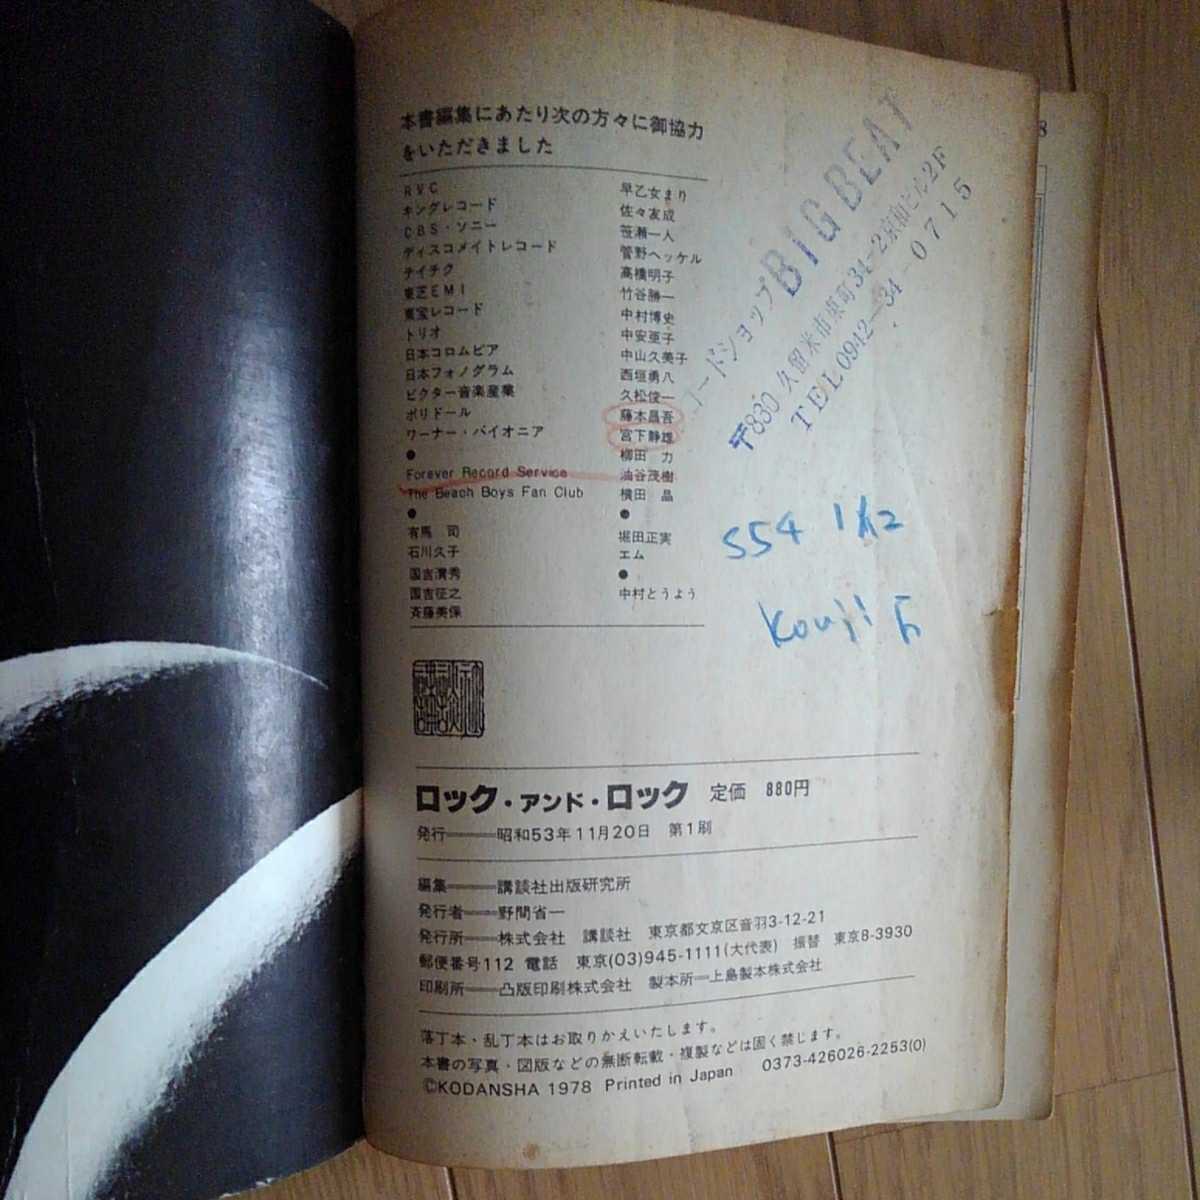 本書編集にあたり次の方々に御協力
をいただきました
RVC
キングレコード
CBS・ソニー
ディスコメイトレコード
テイチク
東芝EMI
東宝レコード
トリオ
日本コロムビア
日本フォノグラム
ビクター音楽産業
ポリドール
ワーナー・パイオニア
●
Forever Record Service
The Beach Boys Fan Club
●
有馬 司
石川久子
国吉清秀
国吉征之
斉藤美保
早乙女まり
佐々友成
笹瀬一人
菅野ヘッケル
高橋明子
竹谷勝一
中村博史
中安亜子
中山久美子
西垣勇八
久松俊一
藤本昌吾
宮下静雄
柳田 力
油谷茂樹
横田 晶
●
堀田正実
エム
●
中村とうよう
コードショップBIG BEAT
〒830 久留米市東町34-2京和ビル2F
TEL0942-34-0715
S54 1/12
Kouji F
ロック・アンド・ロック 定価 880円
発行──昭和53年11月20日 第1刷
編集──講談社出版研究所
発行者──野間省一
発行所──株式会社 講談社 東京都文京区音羽3-12-21
郵便番号112 電話 東京(03)945-1111(大代表) 振替 東京8-3930
印刷所──凸版印刷株式会社 製本所──上島製本株式会社
落丁本・乱丁本はお取りかえいたします。
本書の写真・図版などの無断転載・複製などは固く禁じます。
©KODANSHA 1978 Printed in Japan 0373-426026-2253(0)
8